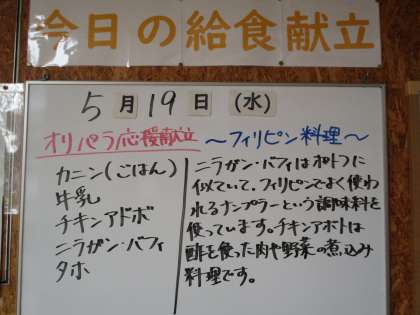 今日の給食献立
5月19日(水)
オリパラ応援献立 ～フィリピン料理～
カニン(ごはん)
牛乳
チキンアドボ
ニラガン・バフィ
タホ
ニラガン・バフィはポトフに
似ていて、フィリピンでよく使わ
れるナンプラーという調味料を
使っています。チキンアドボは
酢を使った肉や野菜の煮込み
料理です。